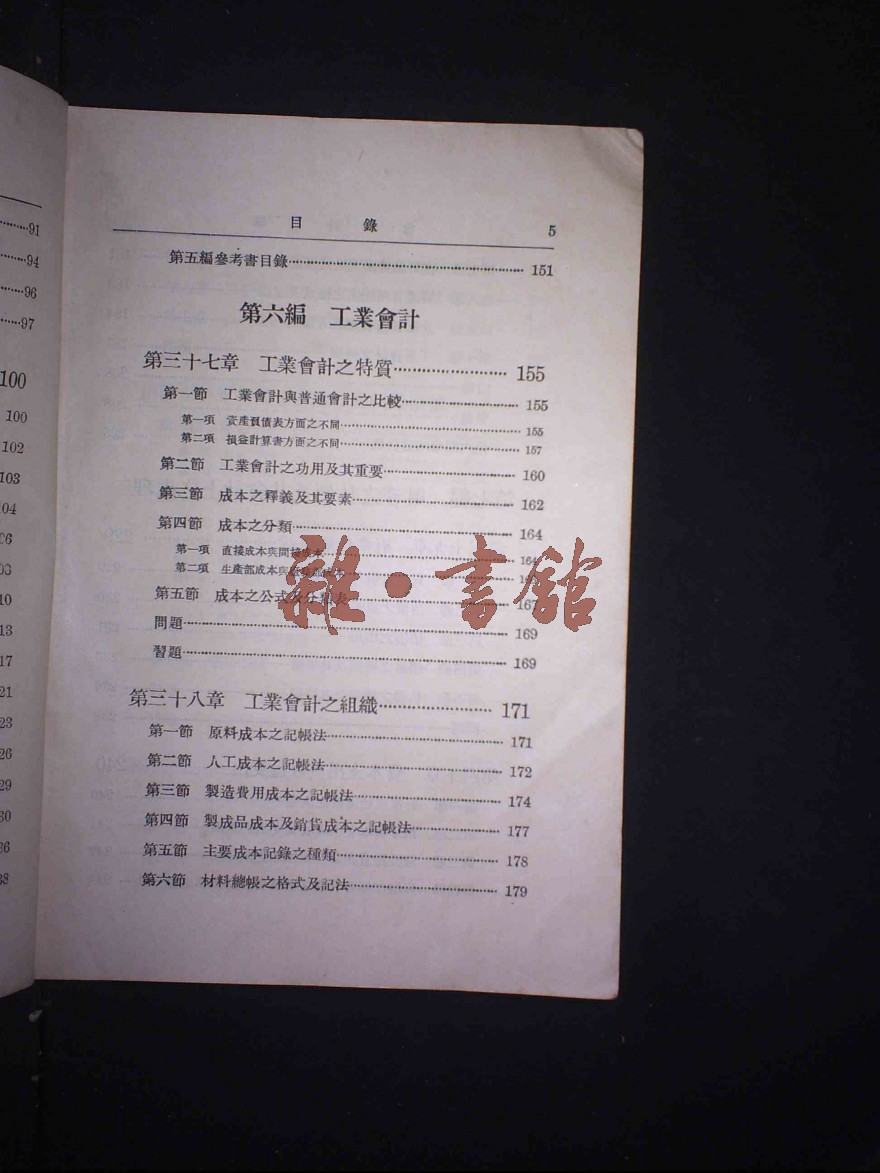 91
94
96
97
100
100
102
103
04
10
13
17
21
23
26
29
30
目 錄 5
第五編參考書目錄 151
第六編 工業會計
第三十七章 工業會計之特質 155
第一節 工業會計與普通會計之比較 155
第一項 資產負債表方面之不同 155
第二項 損益計算書方面之不同 157
第二節 工業會計之功用及其重要 160
第三節 成本之釋義及其要素 162
第四節 成本之分類 164
第一項 直接成本與間接成本 164
第二項 生產部成本與
第五節 成本之公式及分類表 167
問題 169
習題 169
第三十八章 工業會計之組織 171
第一節 原料成本之記帳法 171
第二節 人工成本之記帳法 172
第三節 製造費用成本之記帳法 174
第四節 製成品成本及銷貨成本之記帳法 177
第五節 主要成本記錄之種類 178
第六節 材料總帳之格式及記法 179
雜·書館